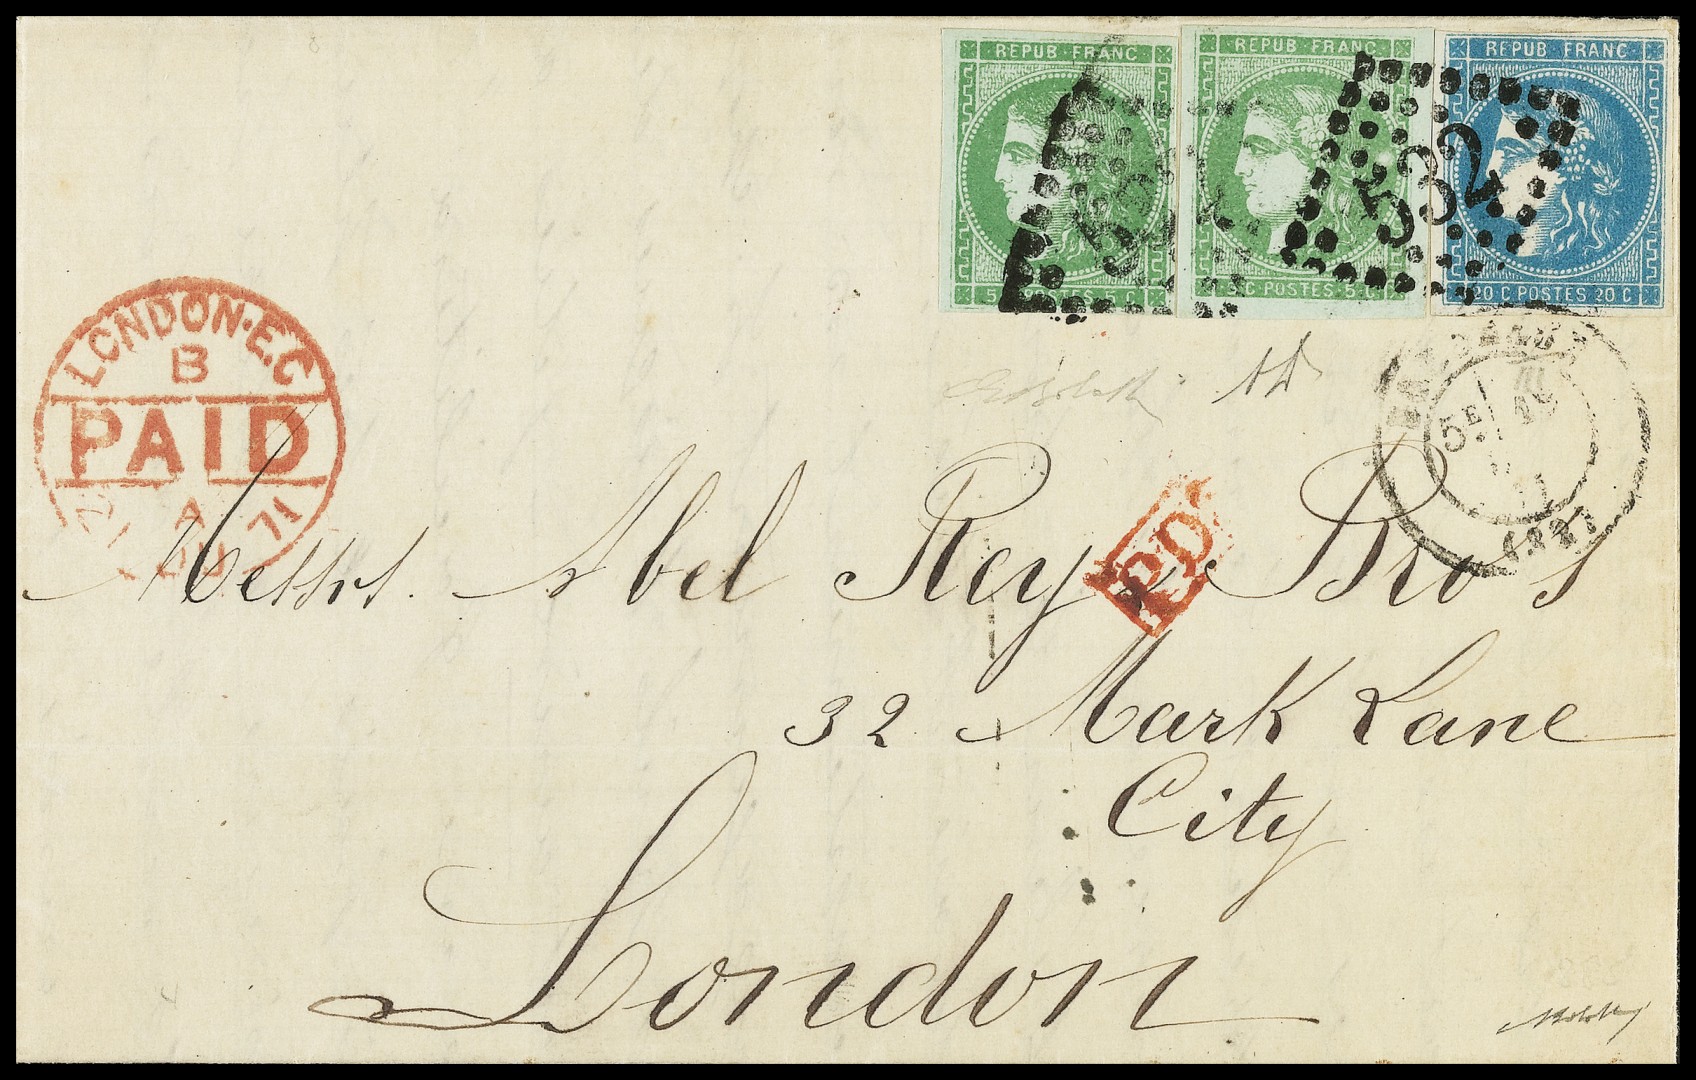 REPUB FRANC
5 C POSTES 5 C
REPUB FRANC
5 C POSTES 5 C
REPUB FRANC
20 C POSTES 20 C
532
LONDON·E.C
B
PAID
A
71
5E
P.D.
Messrs. Abel Rey & Bros
32 Mark Lane
City
London